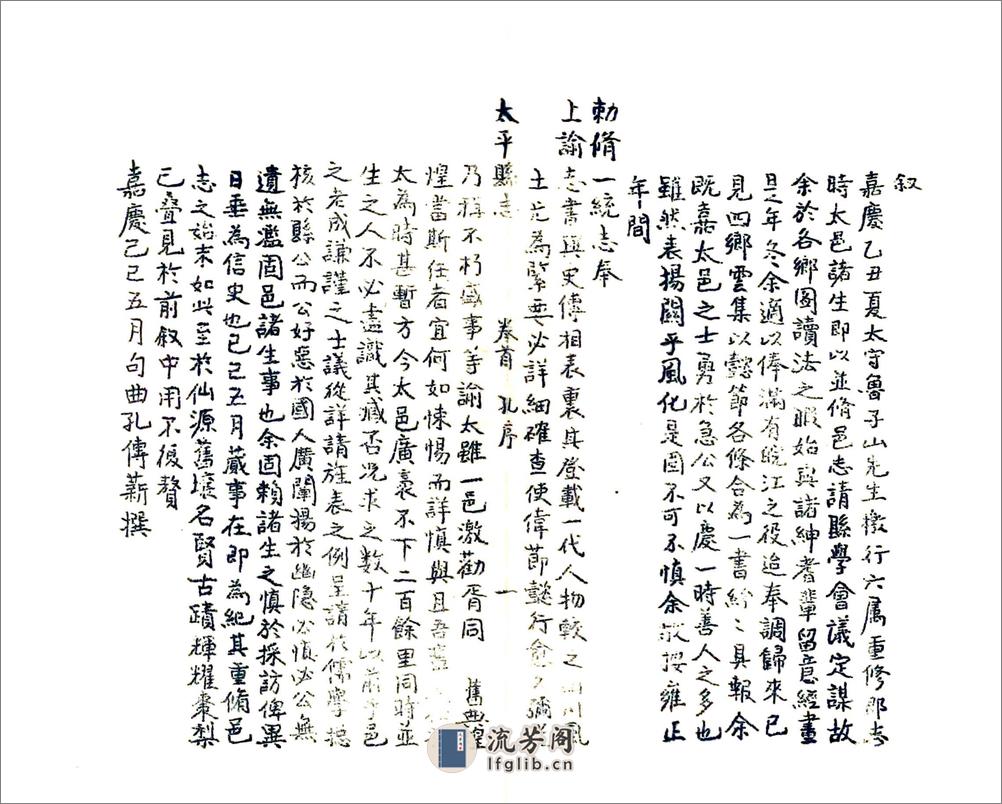 叙
嘉慶乙丑夏太守魯子山先生檄行六属重修郡志
時太邑諸生即以並脩邑志請縣學會議定謀故
余於各鄉圖讀法之暇始與諸紳耆輩留意經畫
是年冬余適以俸滿有皖江之役迨奉調歸來已
見四鄉雲集以懿節各條合為一書紛二具報余
既嘉太邑之士勇於急公又以慶一時善人之多也
雖然表揚關乎風化是固不可不慎余敬按雍正
年間
勅脩一統志奉
上諭志書與史傳相表裏其登載一代人物較之山川風
土尤為緊要必詳細確查使偉節懿行愈久彌
太平縣志 卷首 孔序 一
乃稱不朽盛事等諭太雖一邑激勸胥同 舊典煌
煌當斯任者宜何如悚惕而詳慎與且吾
太為時甚暫方今太邑廣袤不下二百餘里同時並
生之人不必盡識其臧否况求之数十年以前乎邑
之老成謙謹之士議從詳請旌表之例呈請於儒學總
核於縣公而公好惡於國人廣闡揚於幽隱必慎必公無
遺無濫固邑諸生事也余固賴諸生之慎於採訪俾異
日垂為信史也己巳五月蕆事在即為紀其重脩邑
志之始末如此至於仙源舊壤名賢古蹟輝耀棗梨
已疊見於前叙中用不復贅
嘉慶己巳五月句曲孔傳薪撰
流芳阁
lfglib.cn